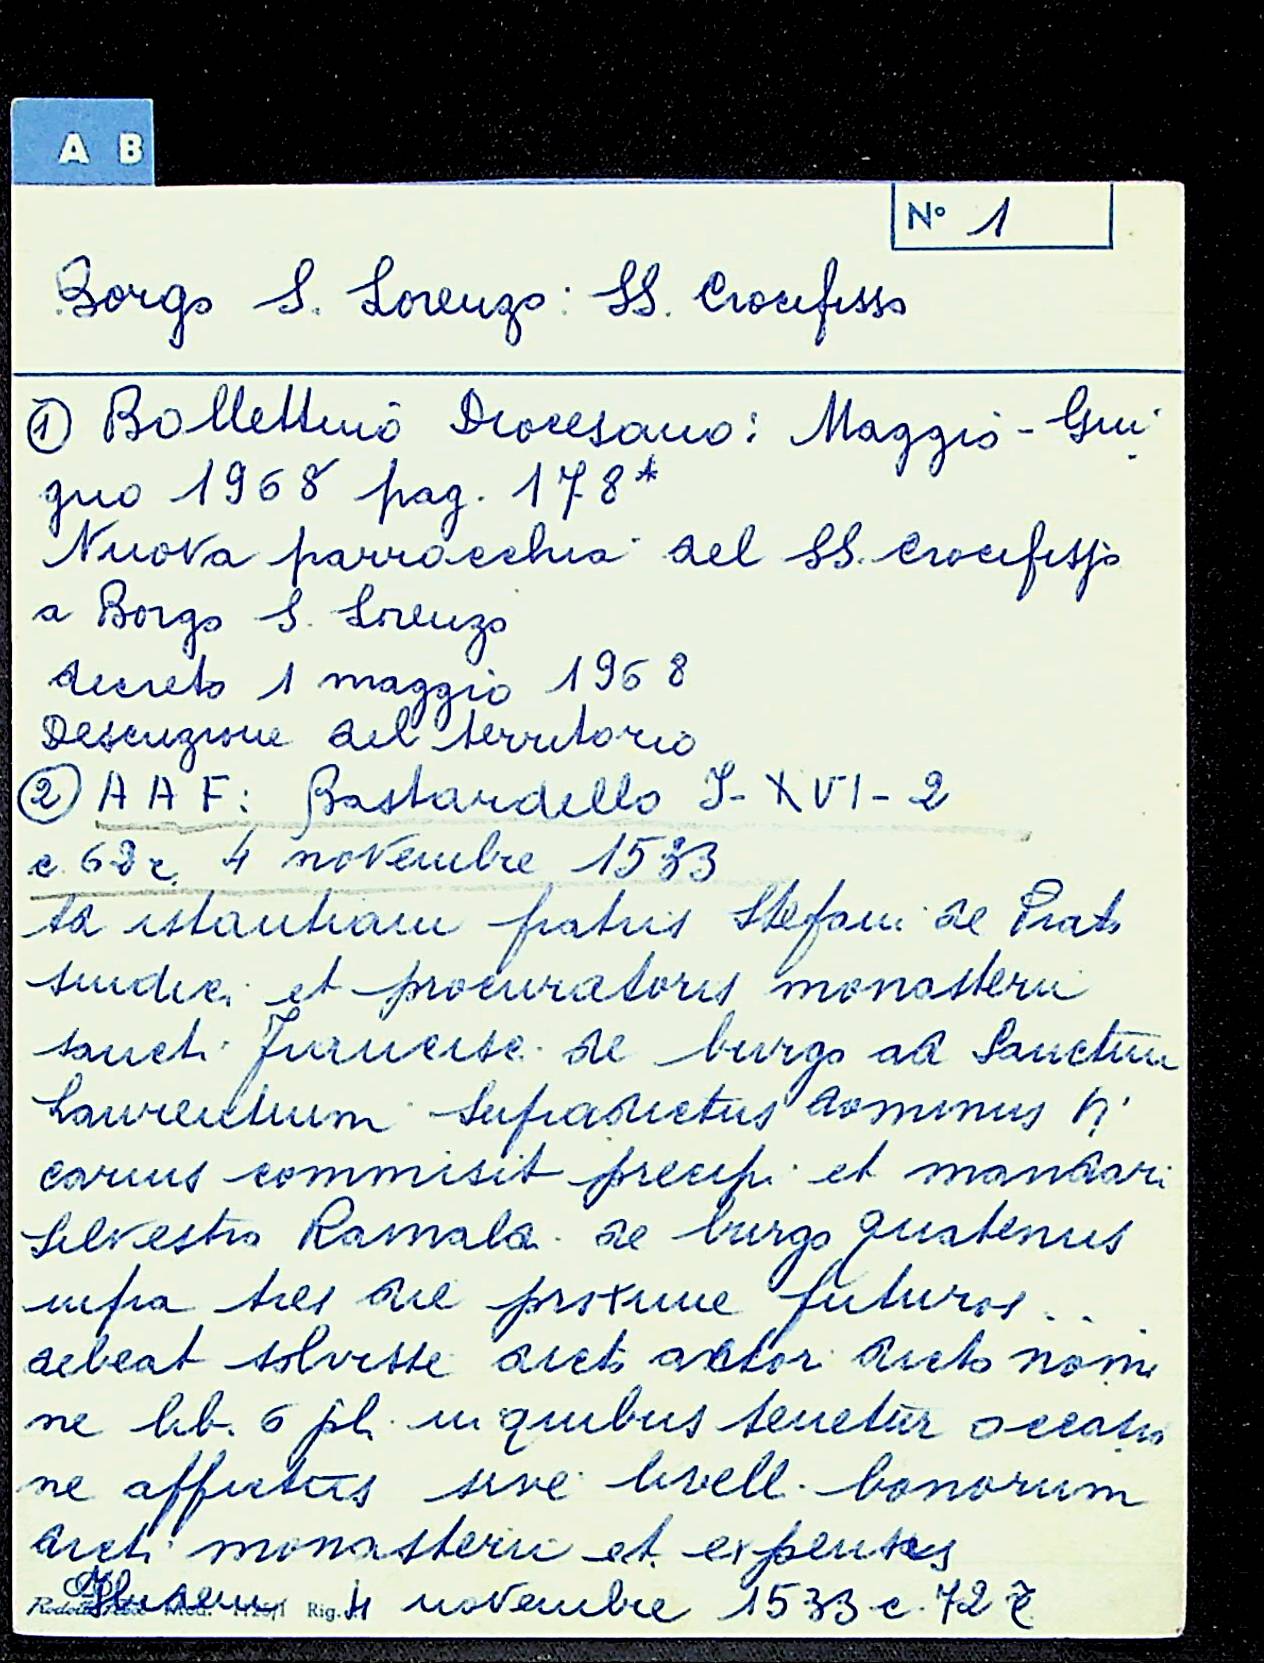 A B
N° 1
Borgo S. Lorenzo: SS. Crocifisso
① Bollettino Diocesano: Maggio-Giu
gno 1968 pag. 178*
Nuova parrocchia del SS. Crocifisso
a Borgo S. Lorenzo
decreto 1 maggio 1968
Descrizione del territorio
② AAF: Bastardello I-XVI-2
4 novembre 1533
istantiam fratris Stefani de Prato
sindici et procuratoris monasterii
sancti de burgo ad Sanctum
Laurentium supradictus dominus Vi
carius commisit precipi et mandari
Silvestro de burgo quatenus
infra tres die proxime futuros...
debeat solvisse dicto actori dicto nomi
ne lib. 6 pl. in quibus tenetur occasio
ne affictus sive livell. bonorum
dicti monasterii et expensis
4 novembre 1533 c. 72